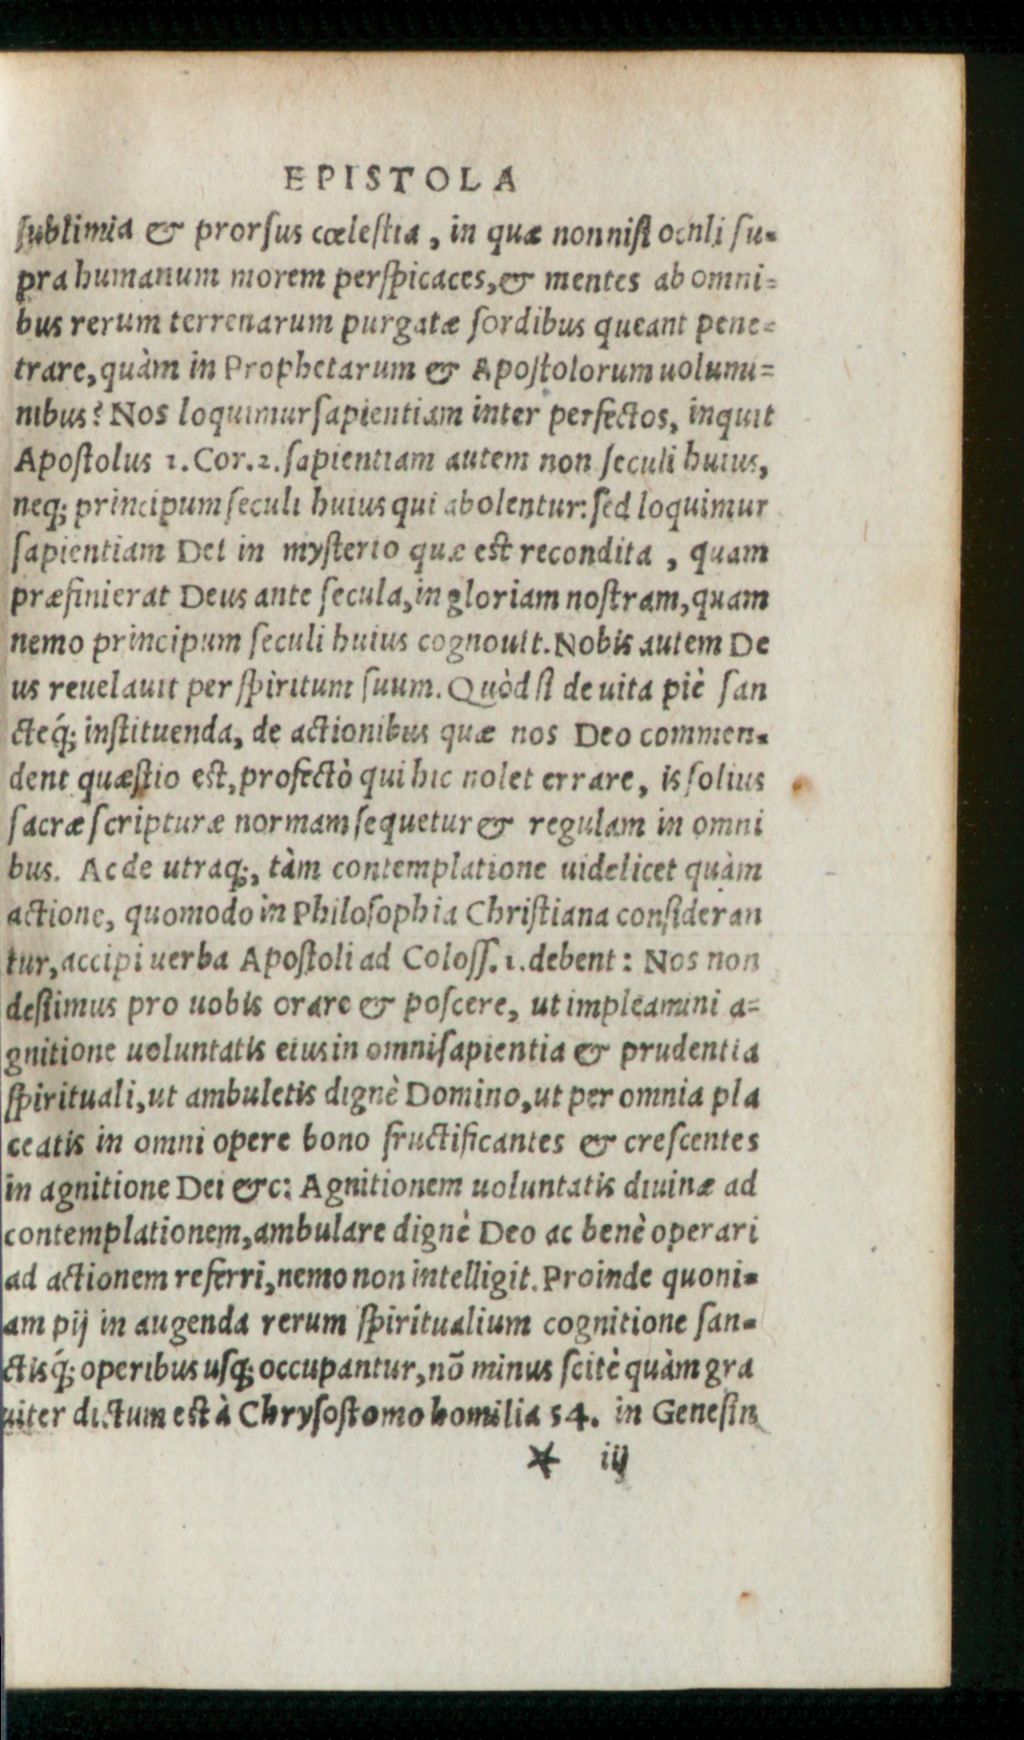 EPISTOLA
sublimia & prorsus cœlestia, in quæ nonnisi oculi su-
pra humanum morem perspicaces, & mentes ab omni-
bus rerum terrenarum purgatæ sordibus queant pene-
trare, quàm in Prophetarum & Apostolorum uolumi-
nibus? Nos loquimur sapientiam inter perfectos, inquit
Apostolus 1. Cor. 2. sapientiam autem non seculi huius,
neq; principum seculi huius qui abolentur: sed loquimur
sapientiam Dei in mysterio quæ est recondita, quam
præfinierat Deus ante secula, in gloriam nostram, quam
nemo principum seculi huius cognouit. Nobis autem De
us reuelauit per spiritum suum. Quòd si de uita piè san
cteq́; instituenda, de actionibus quæ nos Deo commen-
dent quæstio est, profectò qui hic nolet errare, is solius
sacræ scripturæ normam sequetur & regulam in omni
bus. Ac de utraq;, tàm contemplatione uidelicet quàm
actione, quomodo in Philosophia Christiana consideran
tur, accipi uerba Apostoli ad Coloss. 1. debent: Nos non
desiimus pro uobis orare & poscere, ut impleamini a-
gnitione uoluntatis eius in omni sapientia & prudentia
spirituali, ut ambuletis dignè Domino, ut per omnia pla
ceatis in omni opere bono fructificantes & crescentes
in agnitione Dei &c: Agnitionem uoluntatis diuinæ ad
contemplationem, ambulare dignè Deo ac benè operari
ad actionem referri, nemo non intelligit. Proinde quoni-
am pij in augenda rerum spiritualium cognitione san-
ctisq́; operibus usq; occupantur, nō minus scitè quàm gra
uiter dictum est à Chrysostomo homilia 54. in Genesin
* iij